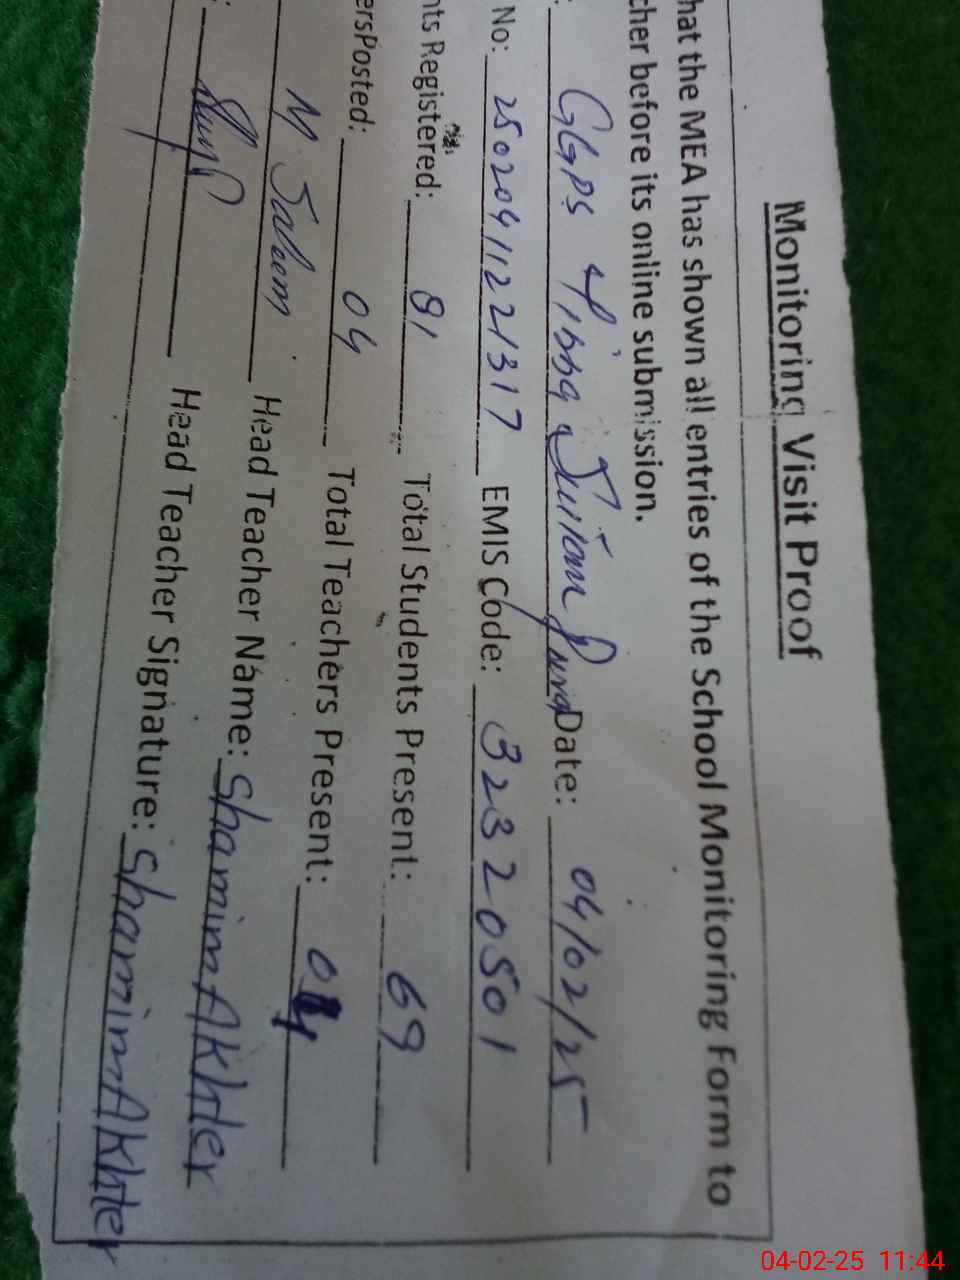 Monitoring Visit Proof
hat the MEA has shown all entries of the School Monitoring Form to
cher before its online submission.
: GGPS Sultan Pura Date: 04/02/25
No: 25020411221317 EMIS Code: 32320501
nts Registered: 81 Total Students Present: 69
ersPosted: 04 Total Teachers Present: 04
M. Saleem Head Teacher Name: Shamim Akhter
: Head Teacher Signature: Shamim Akhter
04-02-25 11:44